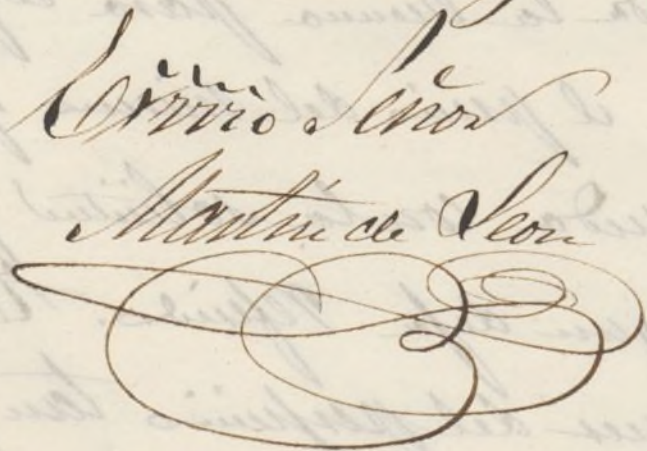 Exmo Señor
Martin de Leon